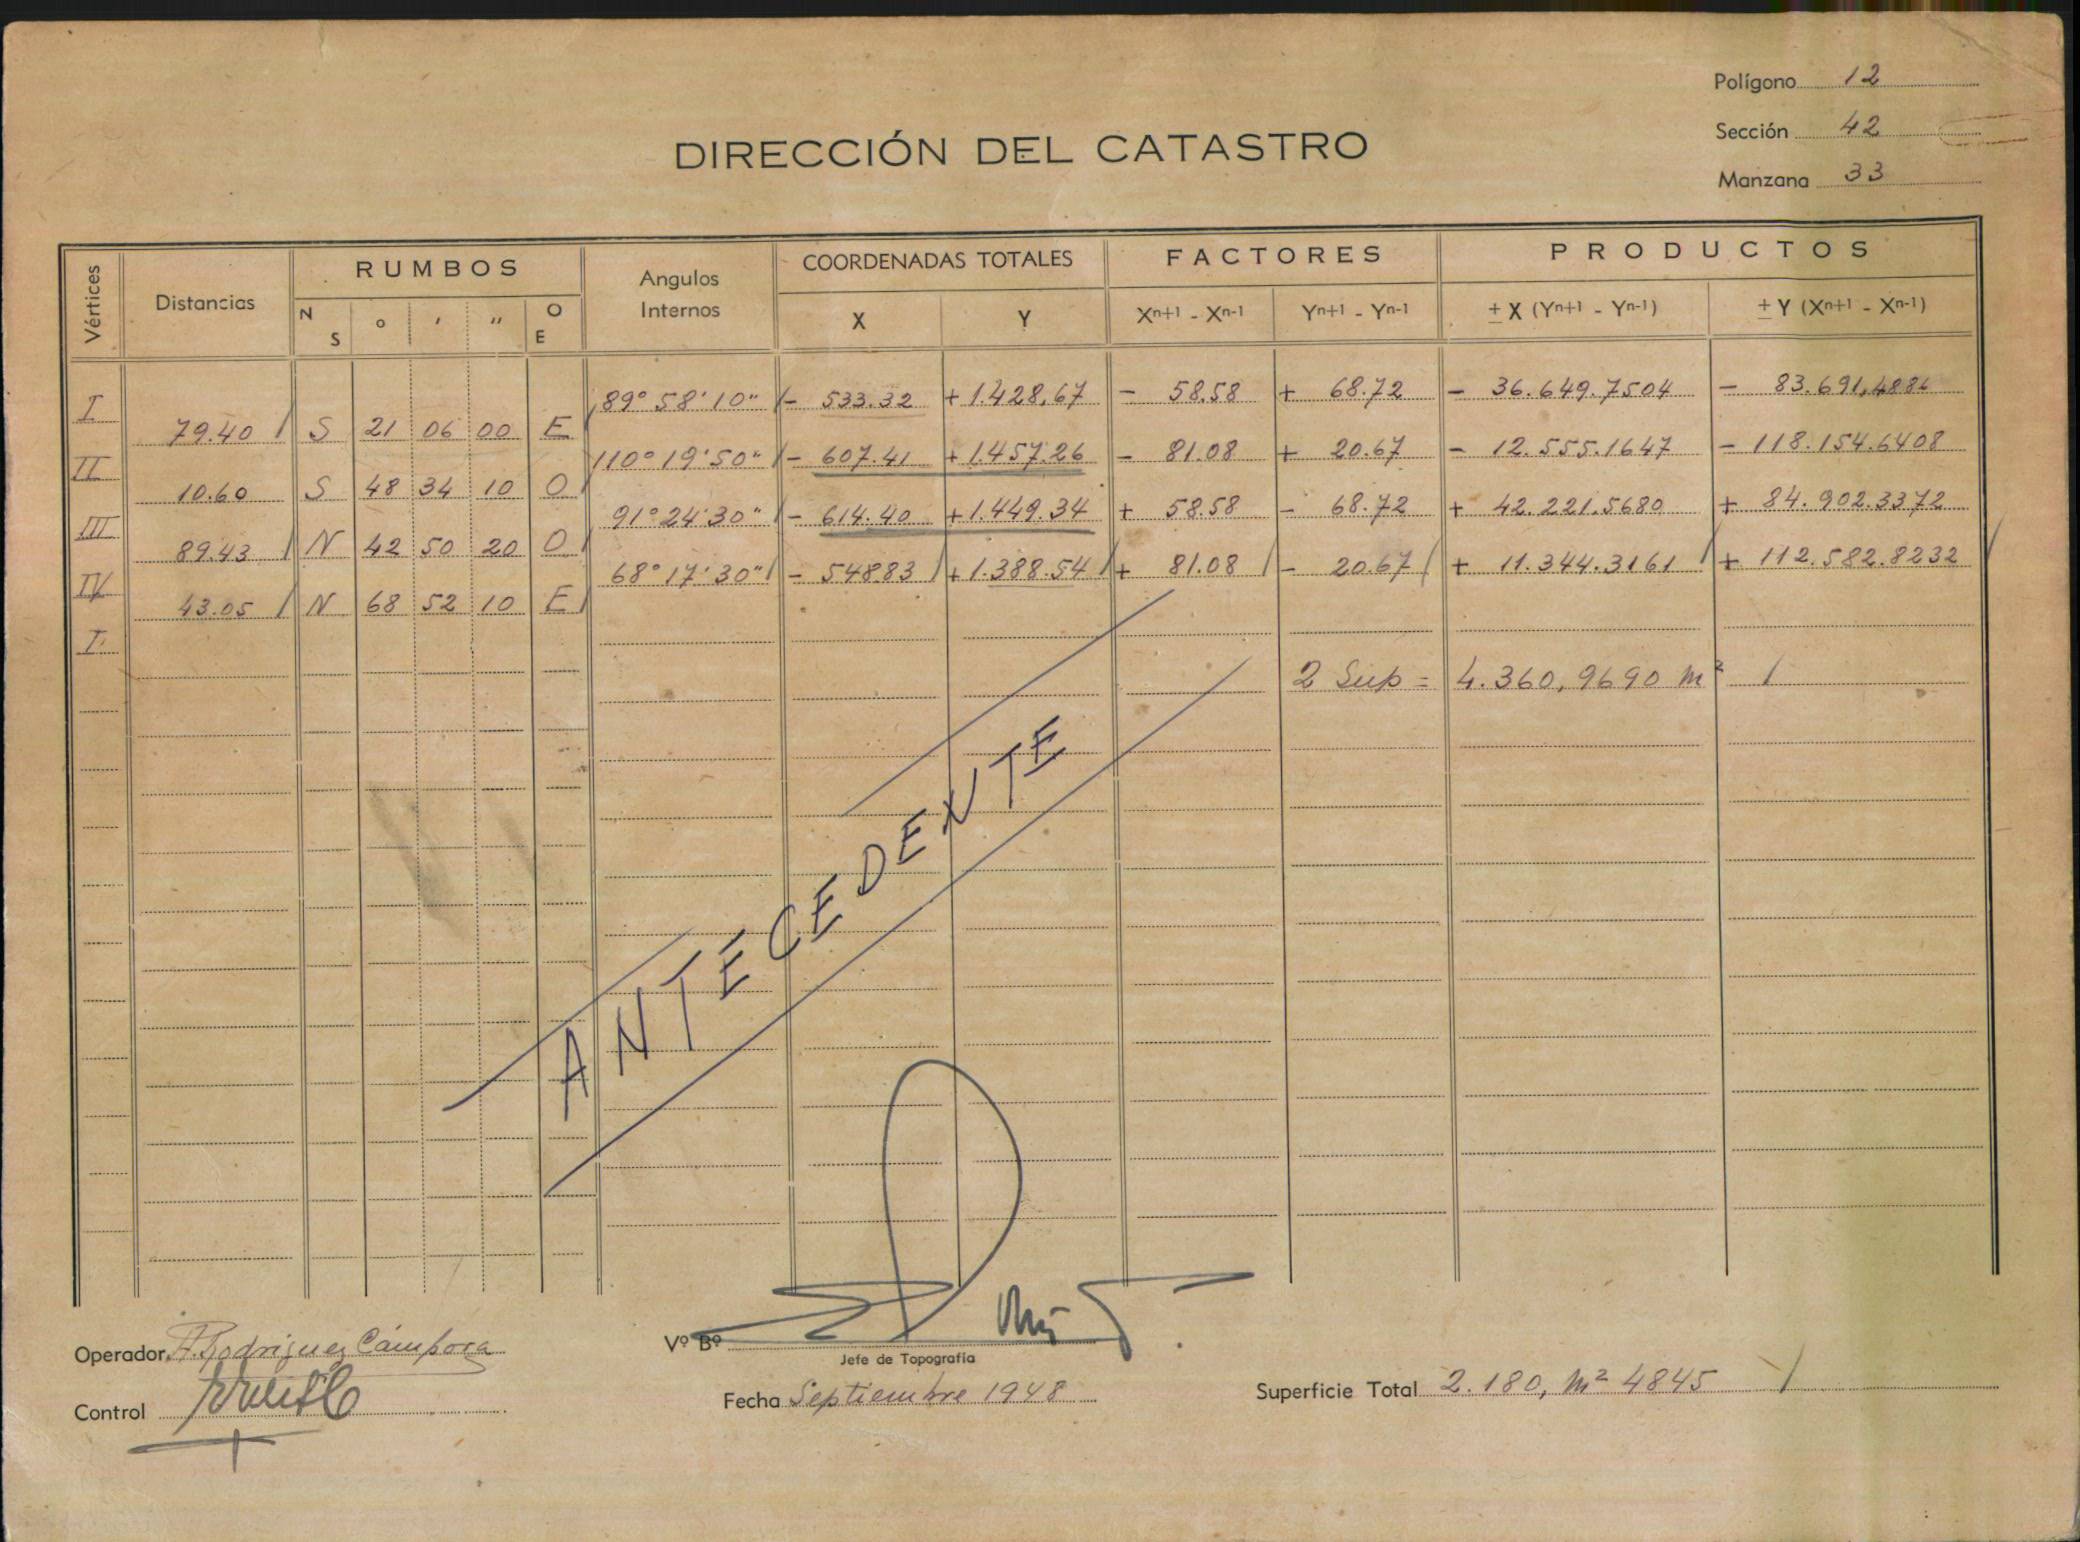 Polígono 12
Sección 42
Manzana 33
DIRECCIÓN DEL CATASTRO
Vértices Distancias RUMBOS Angulos Internos COORDENADAS TOTALES FACTORES PRODUCTOS
N S ° ' " O E X Y Xn+1 - Xn-1 Yn+1 - Yn-1 ± X (Yn+1 - Yn-1) ± Y (Xn+1 - Xn-1)
I 89° 58' 10" - 533.32 + 1.428,67 - 58.58 + 68.72 - 36.649.7504 - 83.691,4886
79.40 S 21 06 00 E
II 110° 19' 50" - 607.41 + 1.457.26 - 81.08 + 20.67 - 12.555.1647 - 118.154.6408
10.60 S 48 34 10 O
III 91° 24' 30" - 614.40 + 1.449.34 + 58.58 - 68.72 + 42.221.5680 + 84.902.3372
89.43 N 42 50 20 O
IV 68° 17' 30" - 548.83 + 1.388.54 + 81.08 - 20.67 + 11.344.3161 + 112.582.8232
43.05 N 68 52 10 E
I
2 Sup = 4.360,9690 m²
ANTECEDENTE
Operador A. Rodriguez Cámpora
Vº Bº
Jefe de Topografía
Control
Fecha Septiembre 1948
Superficie Total 2.180, m² 4845